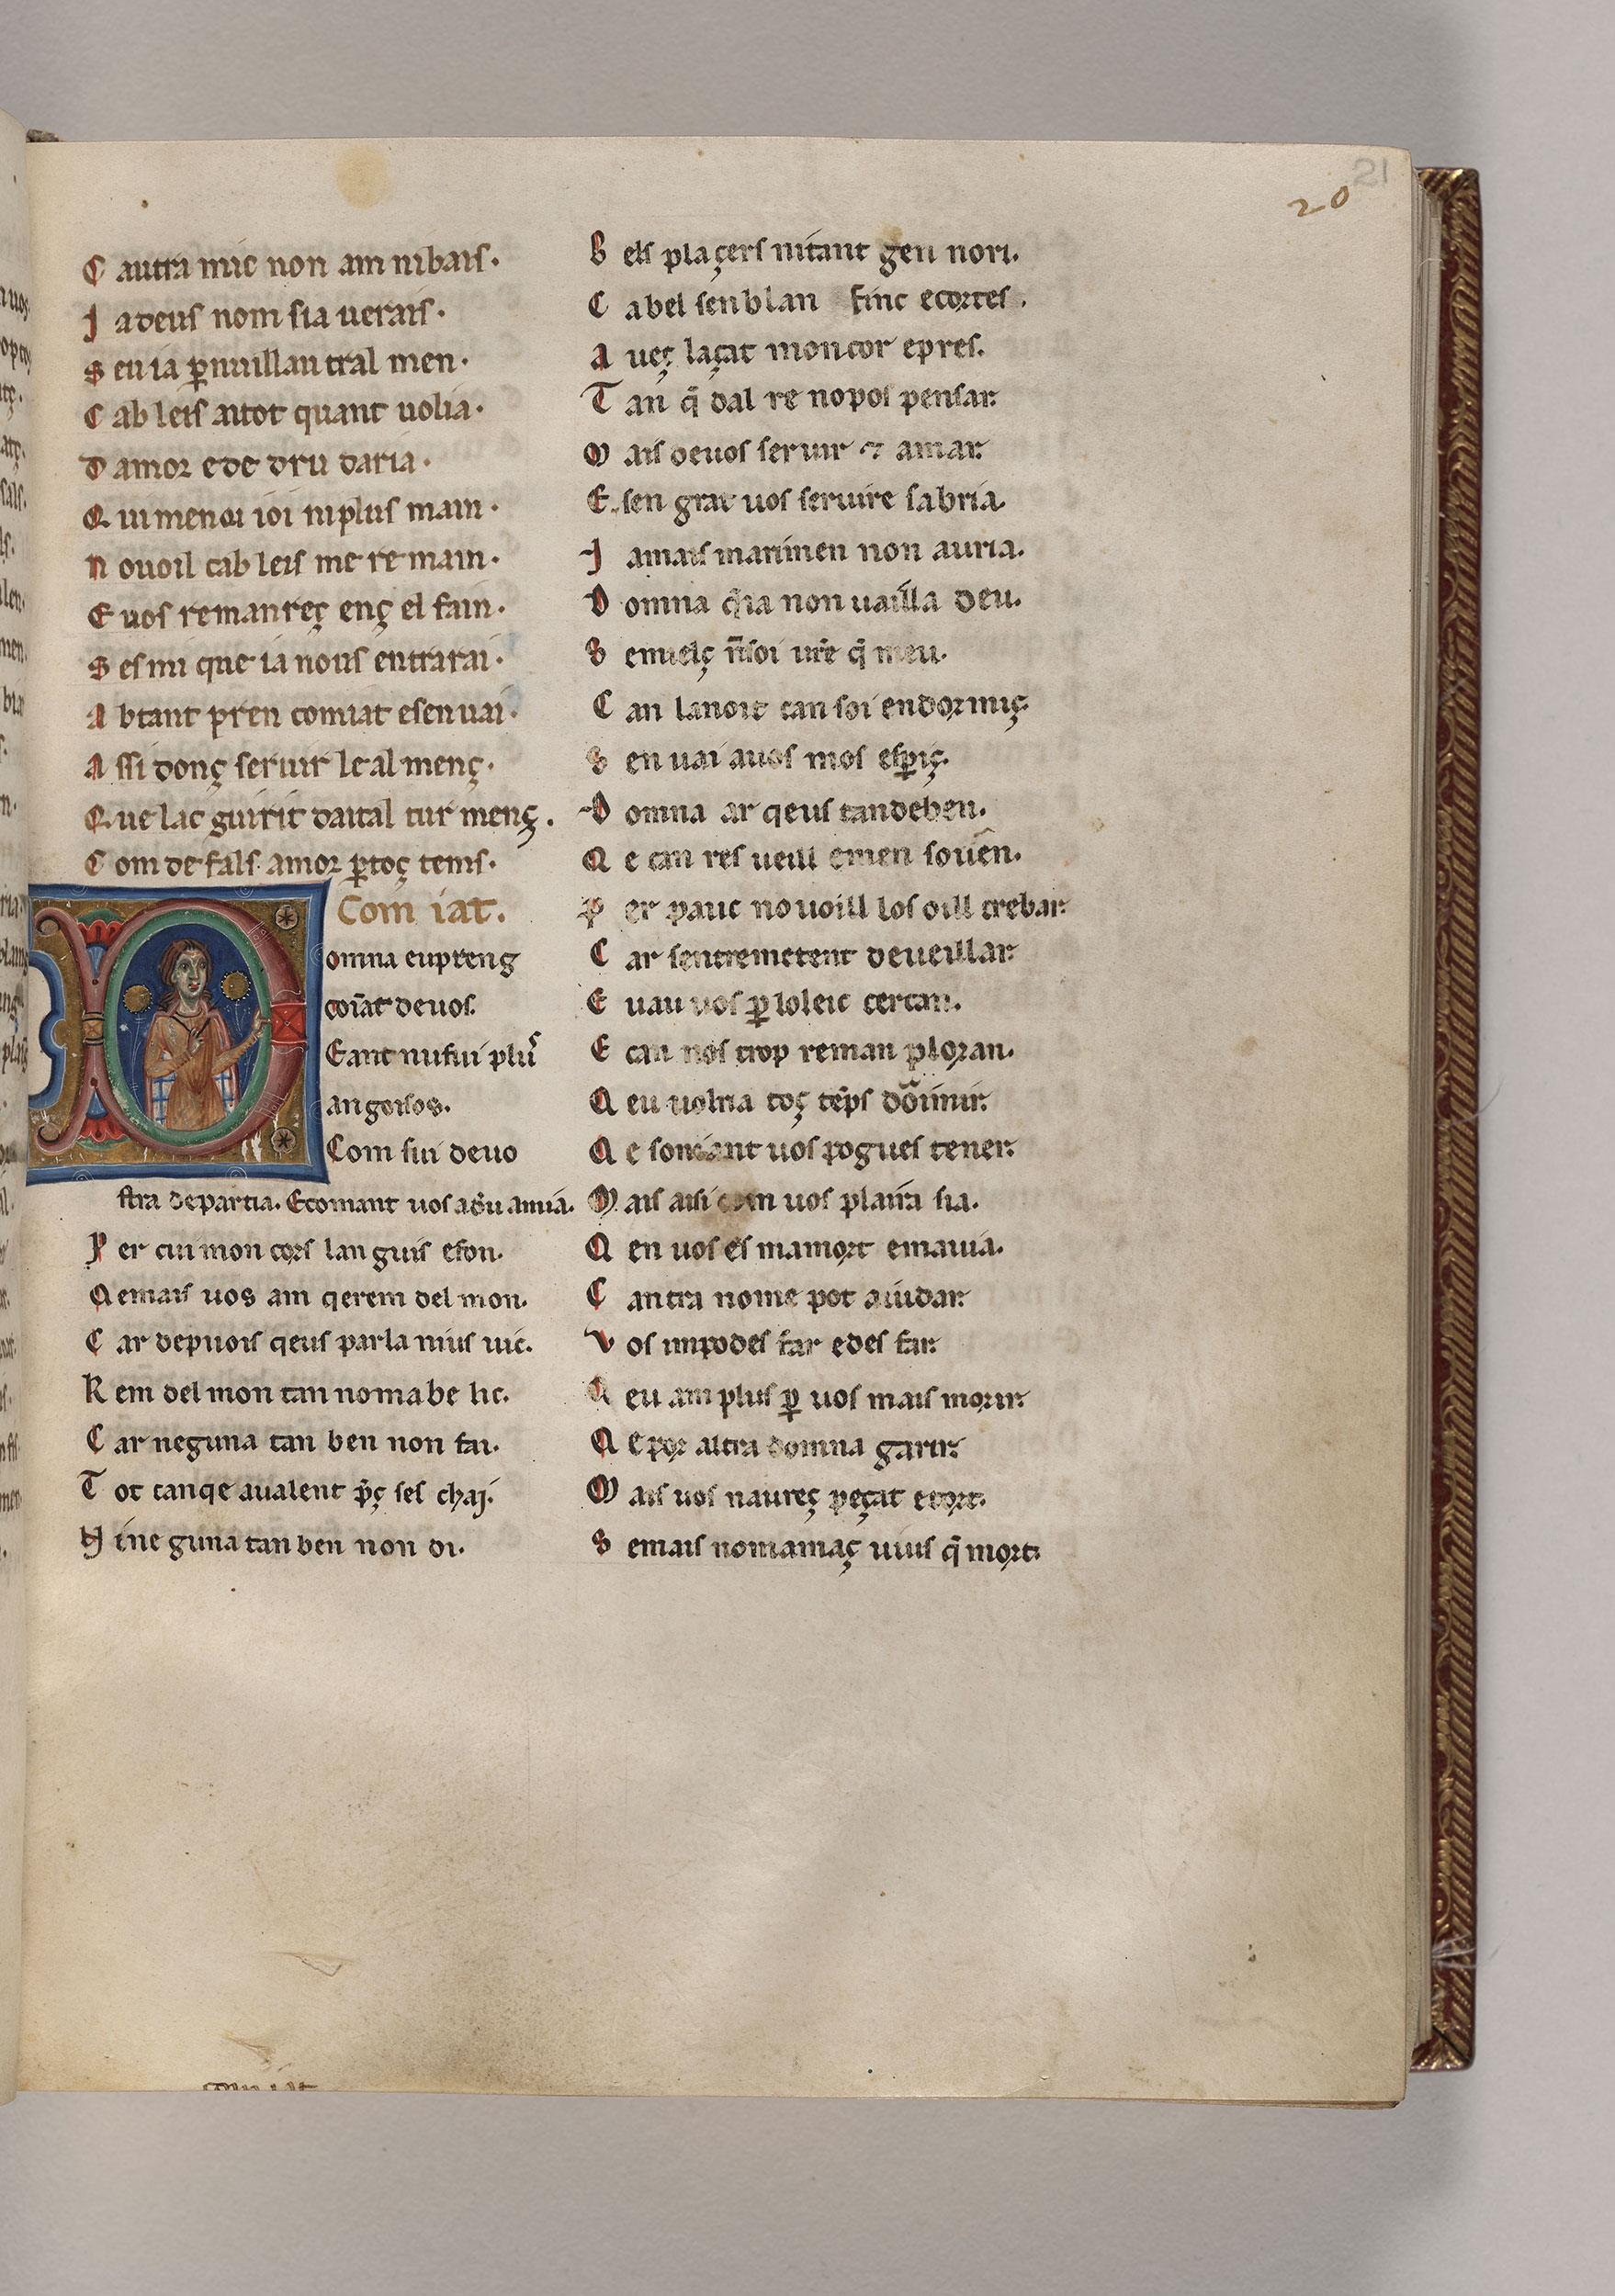 21
20
C autra mie non am nibais.
J a deus nom sia uerais.
S eu ia p̱ nuillau tral men.
C ab leis autot quant uolia.
D amor e de dru daria.
Q ui menai ioi niplus main.
N ouoil cab leis me re main.
E uos remanreç enç el fain.
S es mi que ia nous entrarai.
A btant pren comiat esen uai.
A ssi donç seruir leal menç.
Q ue lac guirit daital tur menç.
C om de fals amor p̱ toç tems.
Com iat.
Domna eu preng
coīat de uos.
E anc nufui plus
angoisos.
Com sui de uo
stra departia. E comant uos adeu amia.
P er cui mon cors lan guis e fon.
Q emais uos am qerem del mon.
C ar depuois qeus parla nius uic.
R em del mon tan noma be lic.
C ar neguna tan ben non fai.
T ot canqe aualent p̄ç ses chaj.
N ine guna tan ben non di.
B els plaçers nitant gen nori.
C abel senblan finc ecortes.
A ueç laçat moncor epres.
T an q̄ dal re nopos pensar.
M ais deuos seruir ⁊ amar.
E sen grat uos seruire sabria.
J amais marimen non auria.
D omna q̄ia non uailla deu.
S emielç n̄soi ur̄e q̄ meu.
C an lanoit can soi endormiç.
S en uai auos mos esp̱iç.
D omna ar qeus tandeben.
Q e can res ueill emen souen.
P er pauc no uoill los oill crebar.
C ar sentremetent deueillar.
E uau uos p̱ loleic cercan.
E can nos trop reman ploran.
Q eu uolria toç tēps dormir.
Q e soniant uos pogues tener.
M ais aisi com uos plaira sia.
Q en uos es mamort emauia.
C autra nome pot aiudar.
V os mpodes far edes far.
Q eu am plus p̱ uos mais morir.
Q e por altra domna garir.
M ais uos naureç peçat etort.
S emais nomamaç uius q̄ mort.